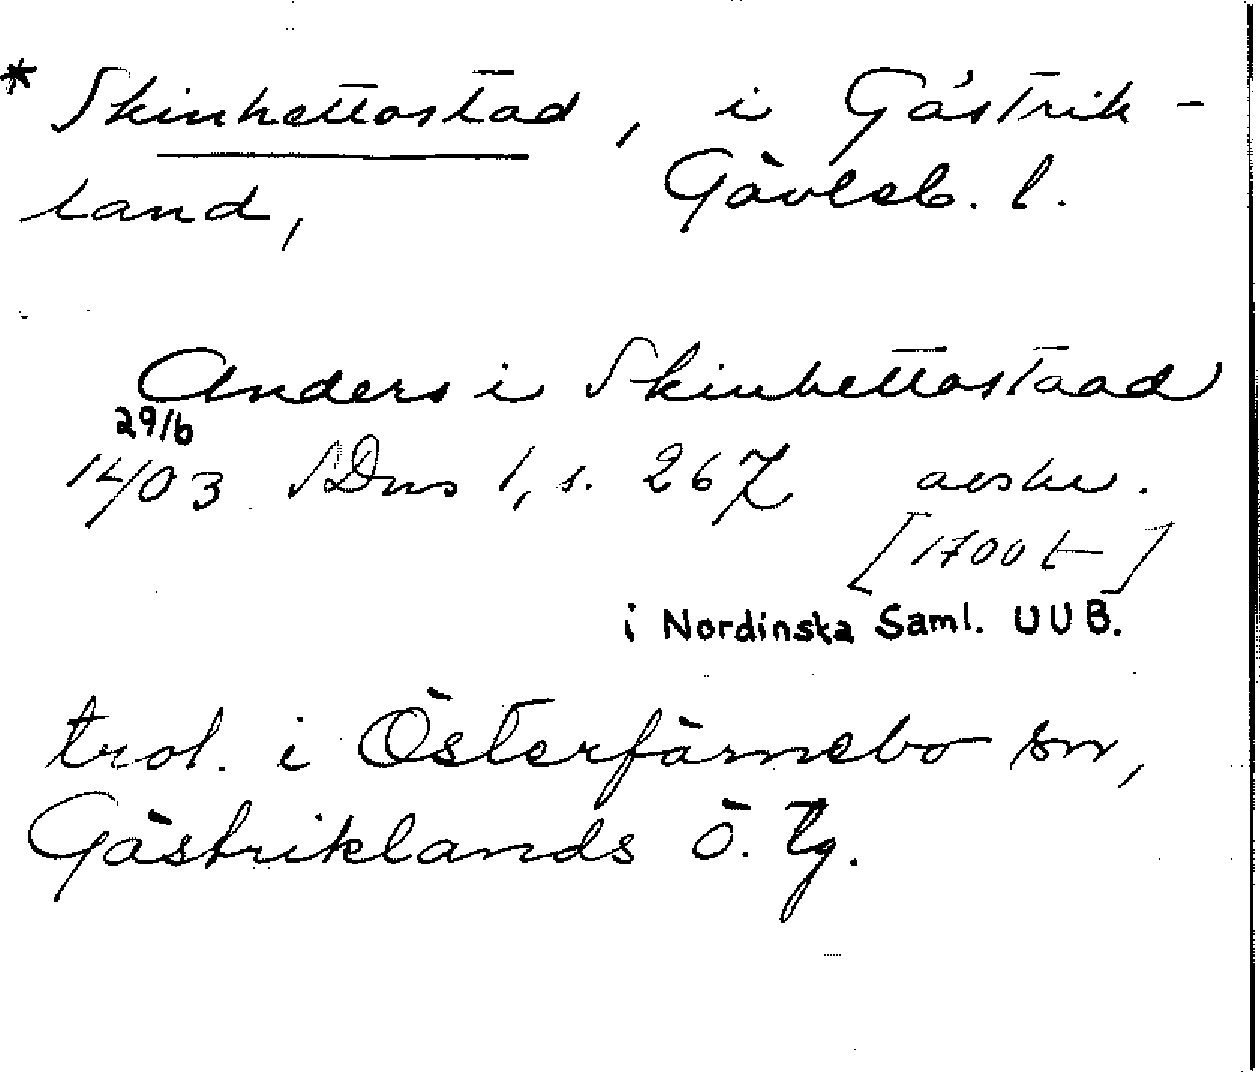 * Skinhettostad, i Gästrik-
land, Gävleb. l.
Anders i Skinhettostaad
29/6
1403 SDns 1, s. 267 avskr.
[1700 t]
i Nordinska Saml. UUB.
trol. i Österfärnebo sn,
Gästriklands ö. tg.